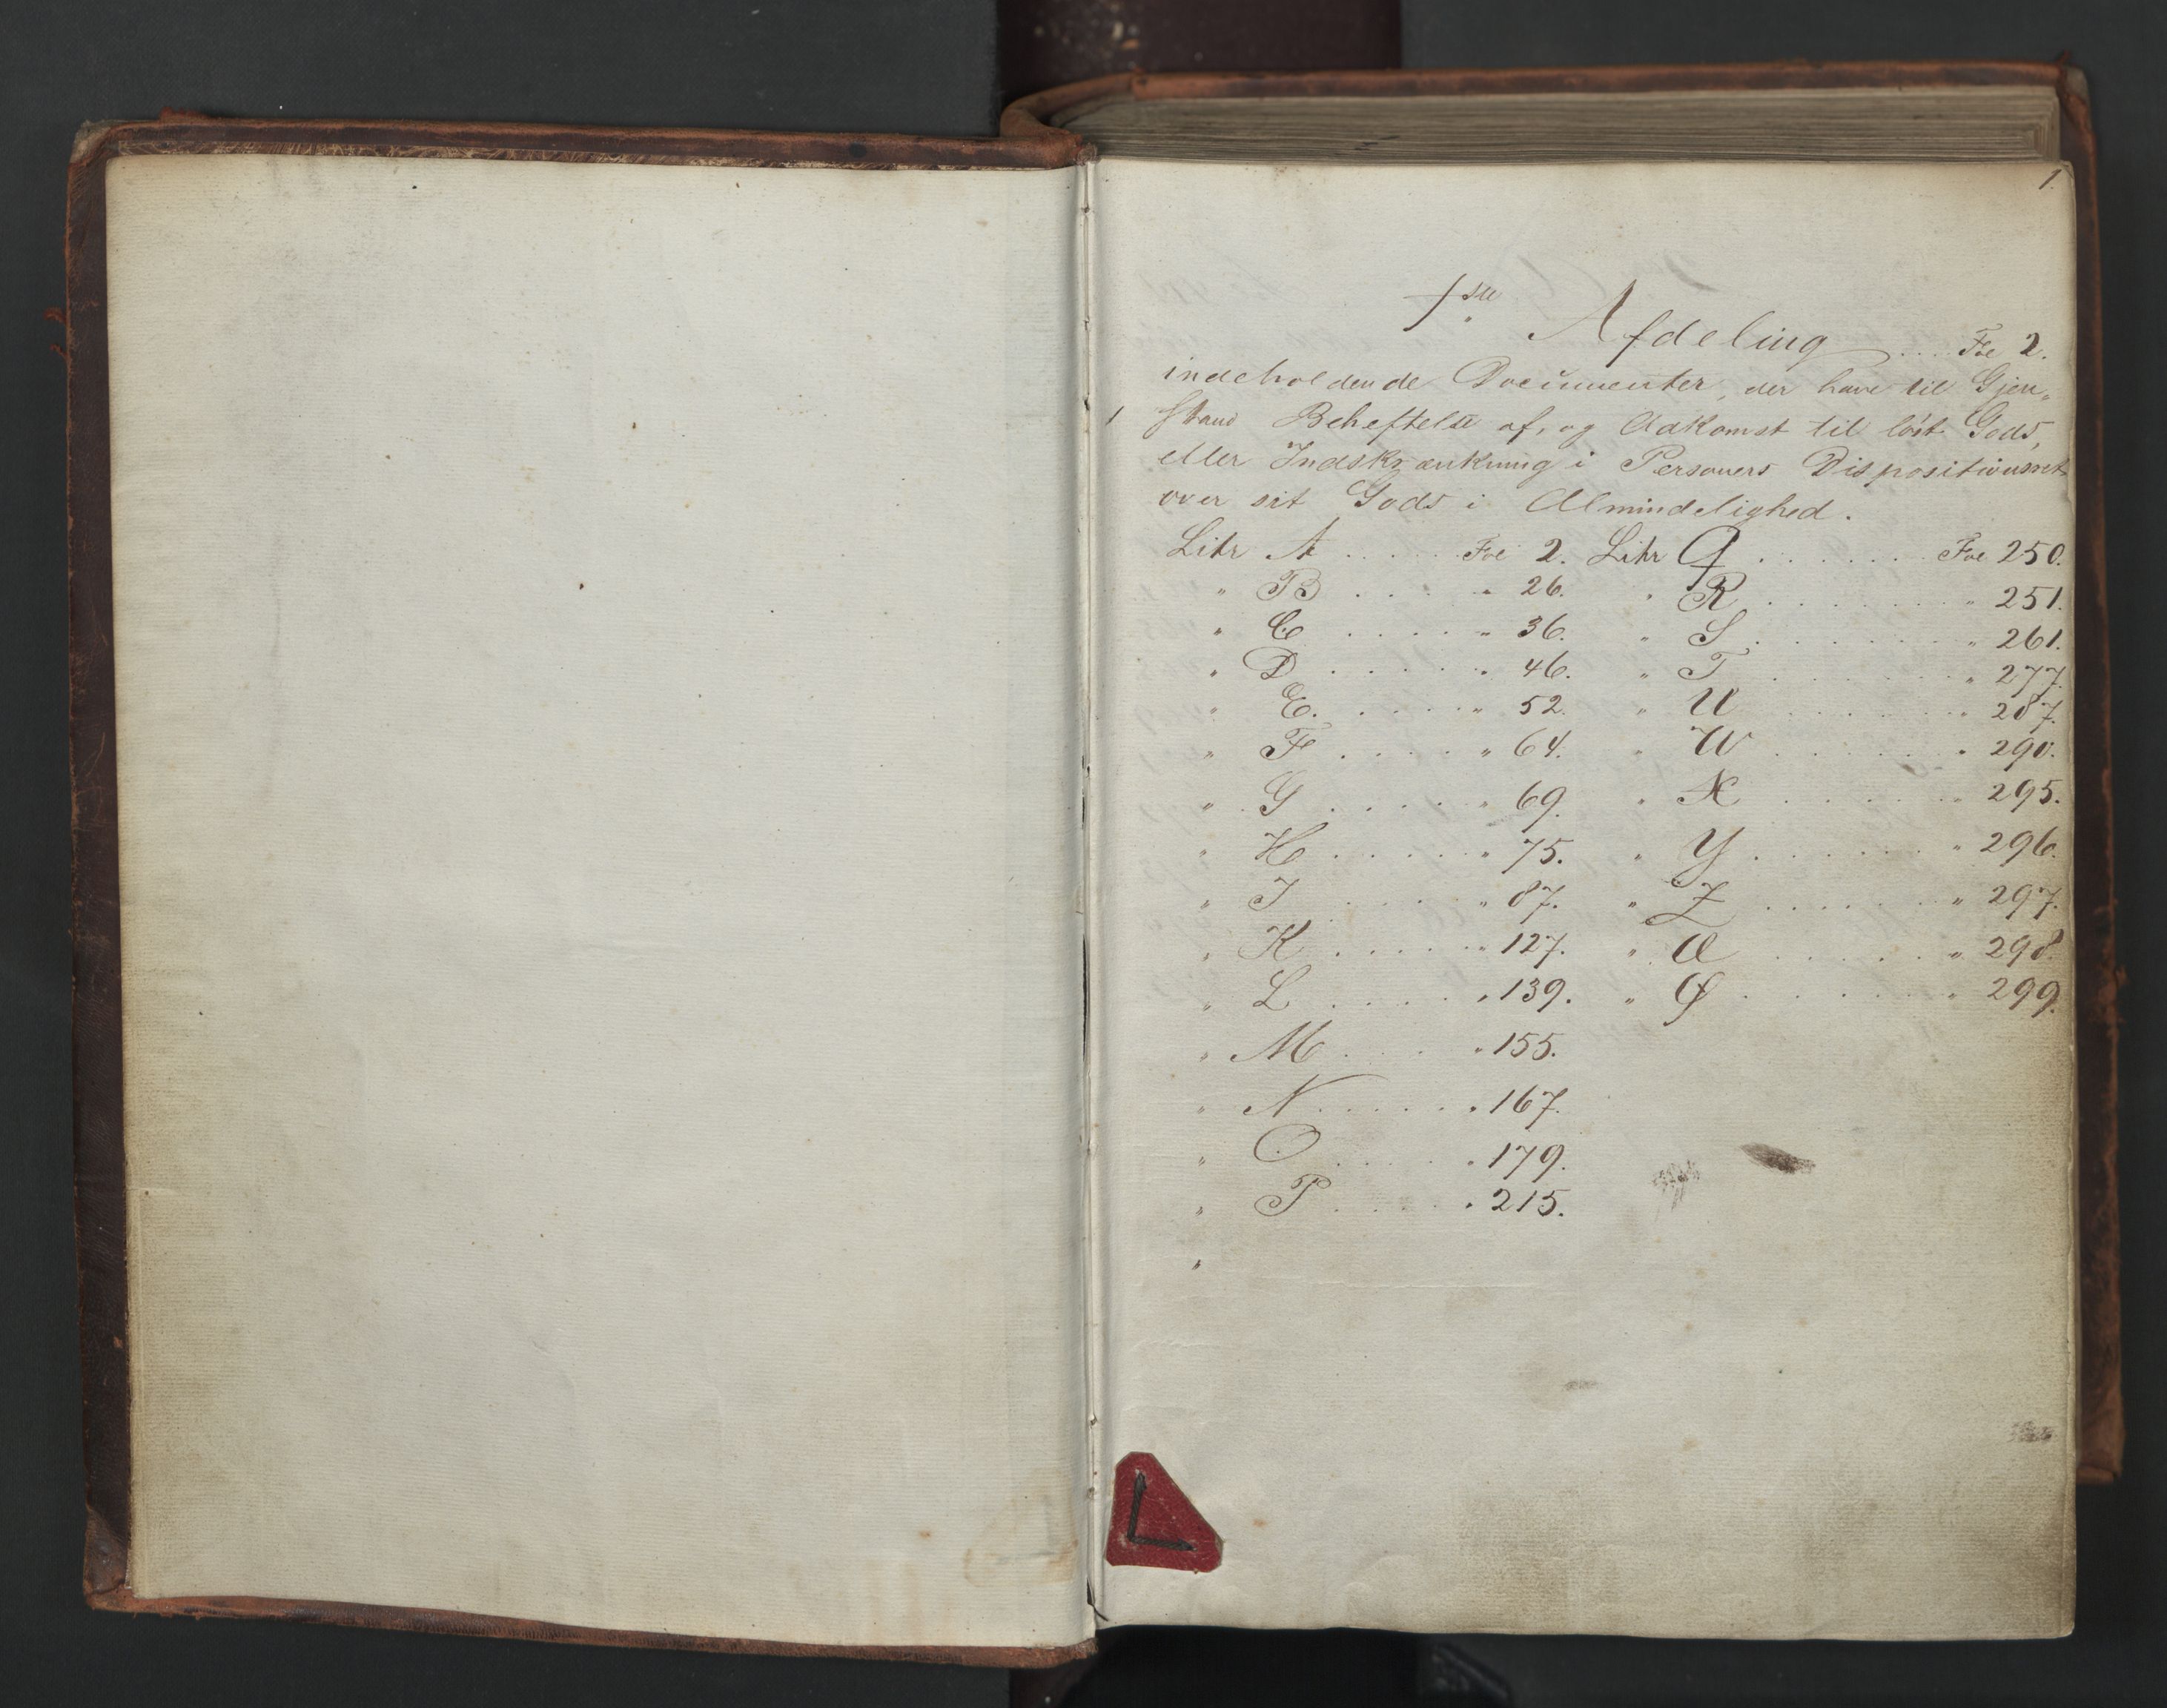 1.
1ste Afdeling .... Foe 2.
indeholdende Documenter, der have til Gjen-
stand Beheftelse af, og Adkomst til löst Gods,
eller Indskrænkning i Personers Dispositionsret
over sit Gods i Almindelighed.
Litr A ..... Foe 2. Litr Q ...... Foe 250.
" B .... " 26. " R ....... " 251.
" C .... " 36. " S ....... " 261.
" D ..... " 46. " T ...... " 277.
" E. .... " 52. " U ..... " 287.
" F .... " 64. " W ..... " 290.
" G .... " 69. " X ..... " 295.
" H ..... " 75. " Y ..... " 296.
" I .... " 87. " Z ...... " 297.
" K ..... " 127. " Æ ..... " 298.
" L ..... " 139. " Ø ..... " 299.
" M .... " 155.
" N ..... " 167.
" O ..... " 179.
" P ..... " 215.
"